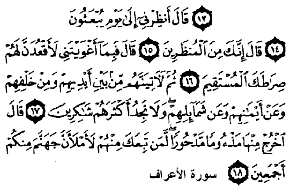 ١٣ قَالَ أَنظِرْنِي إِلَىٰ يَوْمِ يُبْعَثُونَ
١٤ قَالَ إِنَّكَ مِنَ الْمُنظَرِينَ ١٥ قَالَ فَبِمَا أَغْوَيْتَنِي لَأَقْعُدَنَّ لَهُمْ
صِرَاطَكَ الْمُسْتَقِيمَ ١٦ ثُمَّ لَآتِيَنَّهُم مِّن بَيْنِ أَيْدِيهِمْ وَمِنْ خَلْفِهِمْ
وَعَنْ أَيْمَانِهِمْ وَعَن شَمَائِلِهِمْ وَلَا تَجِدُ أَكْثَرَهُمْ شَاكِرِينَ ١٧ قَالَ
اخْرُجْ مِنْهَا مَذْءُومًا مَّدْحُورًا لَّمَن تَبِعَكَ مِنْهُمْ لَأَمْلَأَنَّ جَهَنَّمَ مِنكُمْ
أَجْمَعِينَ ١٨ سورة الأعراف